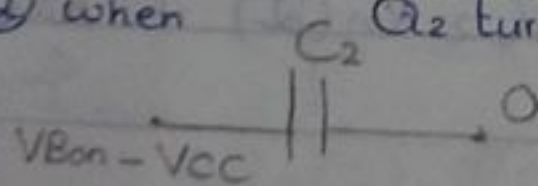 when Q2 tur
C2
O
VBon - VCC